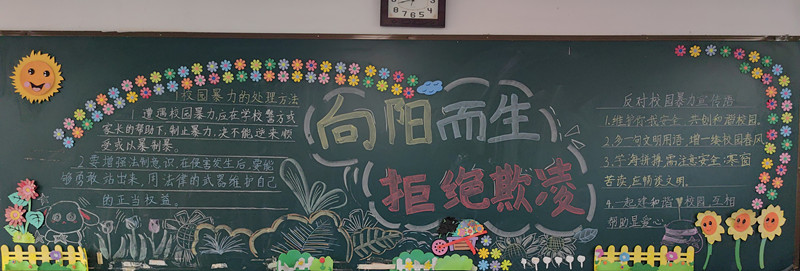 校园暴力的处理方法
1.遭遇校园暴力,应在学校警方或
家长的帮助下,制止暴力,决不能逆来顺
受或以暴制暴。
2.要增强法制意识,在侵害发生后,要能
够勇敢站出来,用法律的武器维护自己
的正当权益。
向阳而生
拒绝欺凌
反对校园暴力宣传语
1.维学行我安全,共创和谐校园。
2.多一句文明用语,增一缕校园春风
3.学海拼搏,需注意安全;寒窗
苦读,应情系文明。
4.一起建和谐校园,互相
帮助显爱心